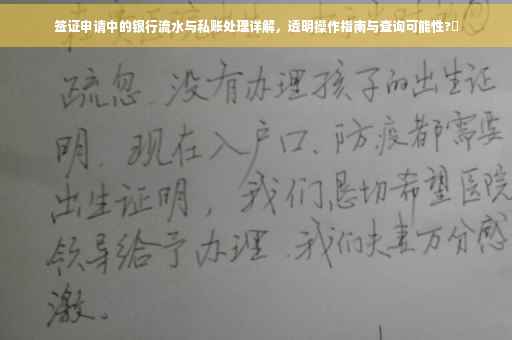 签证申请中的银行流水与私账处理详解，透明操作指南与查询可能性?
疏忽、没有办理孩子的出生证
明、现在入户口、防疫都需要
出生证明，我们恳切希望医院
领导给予办理、我们夫妻万分感
激。